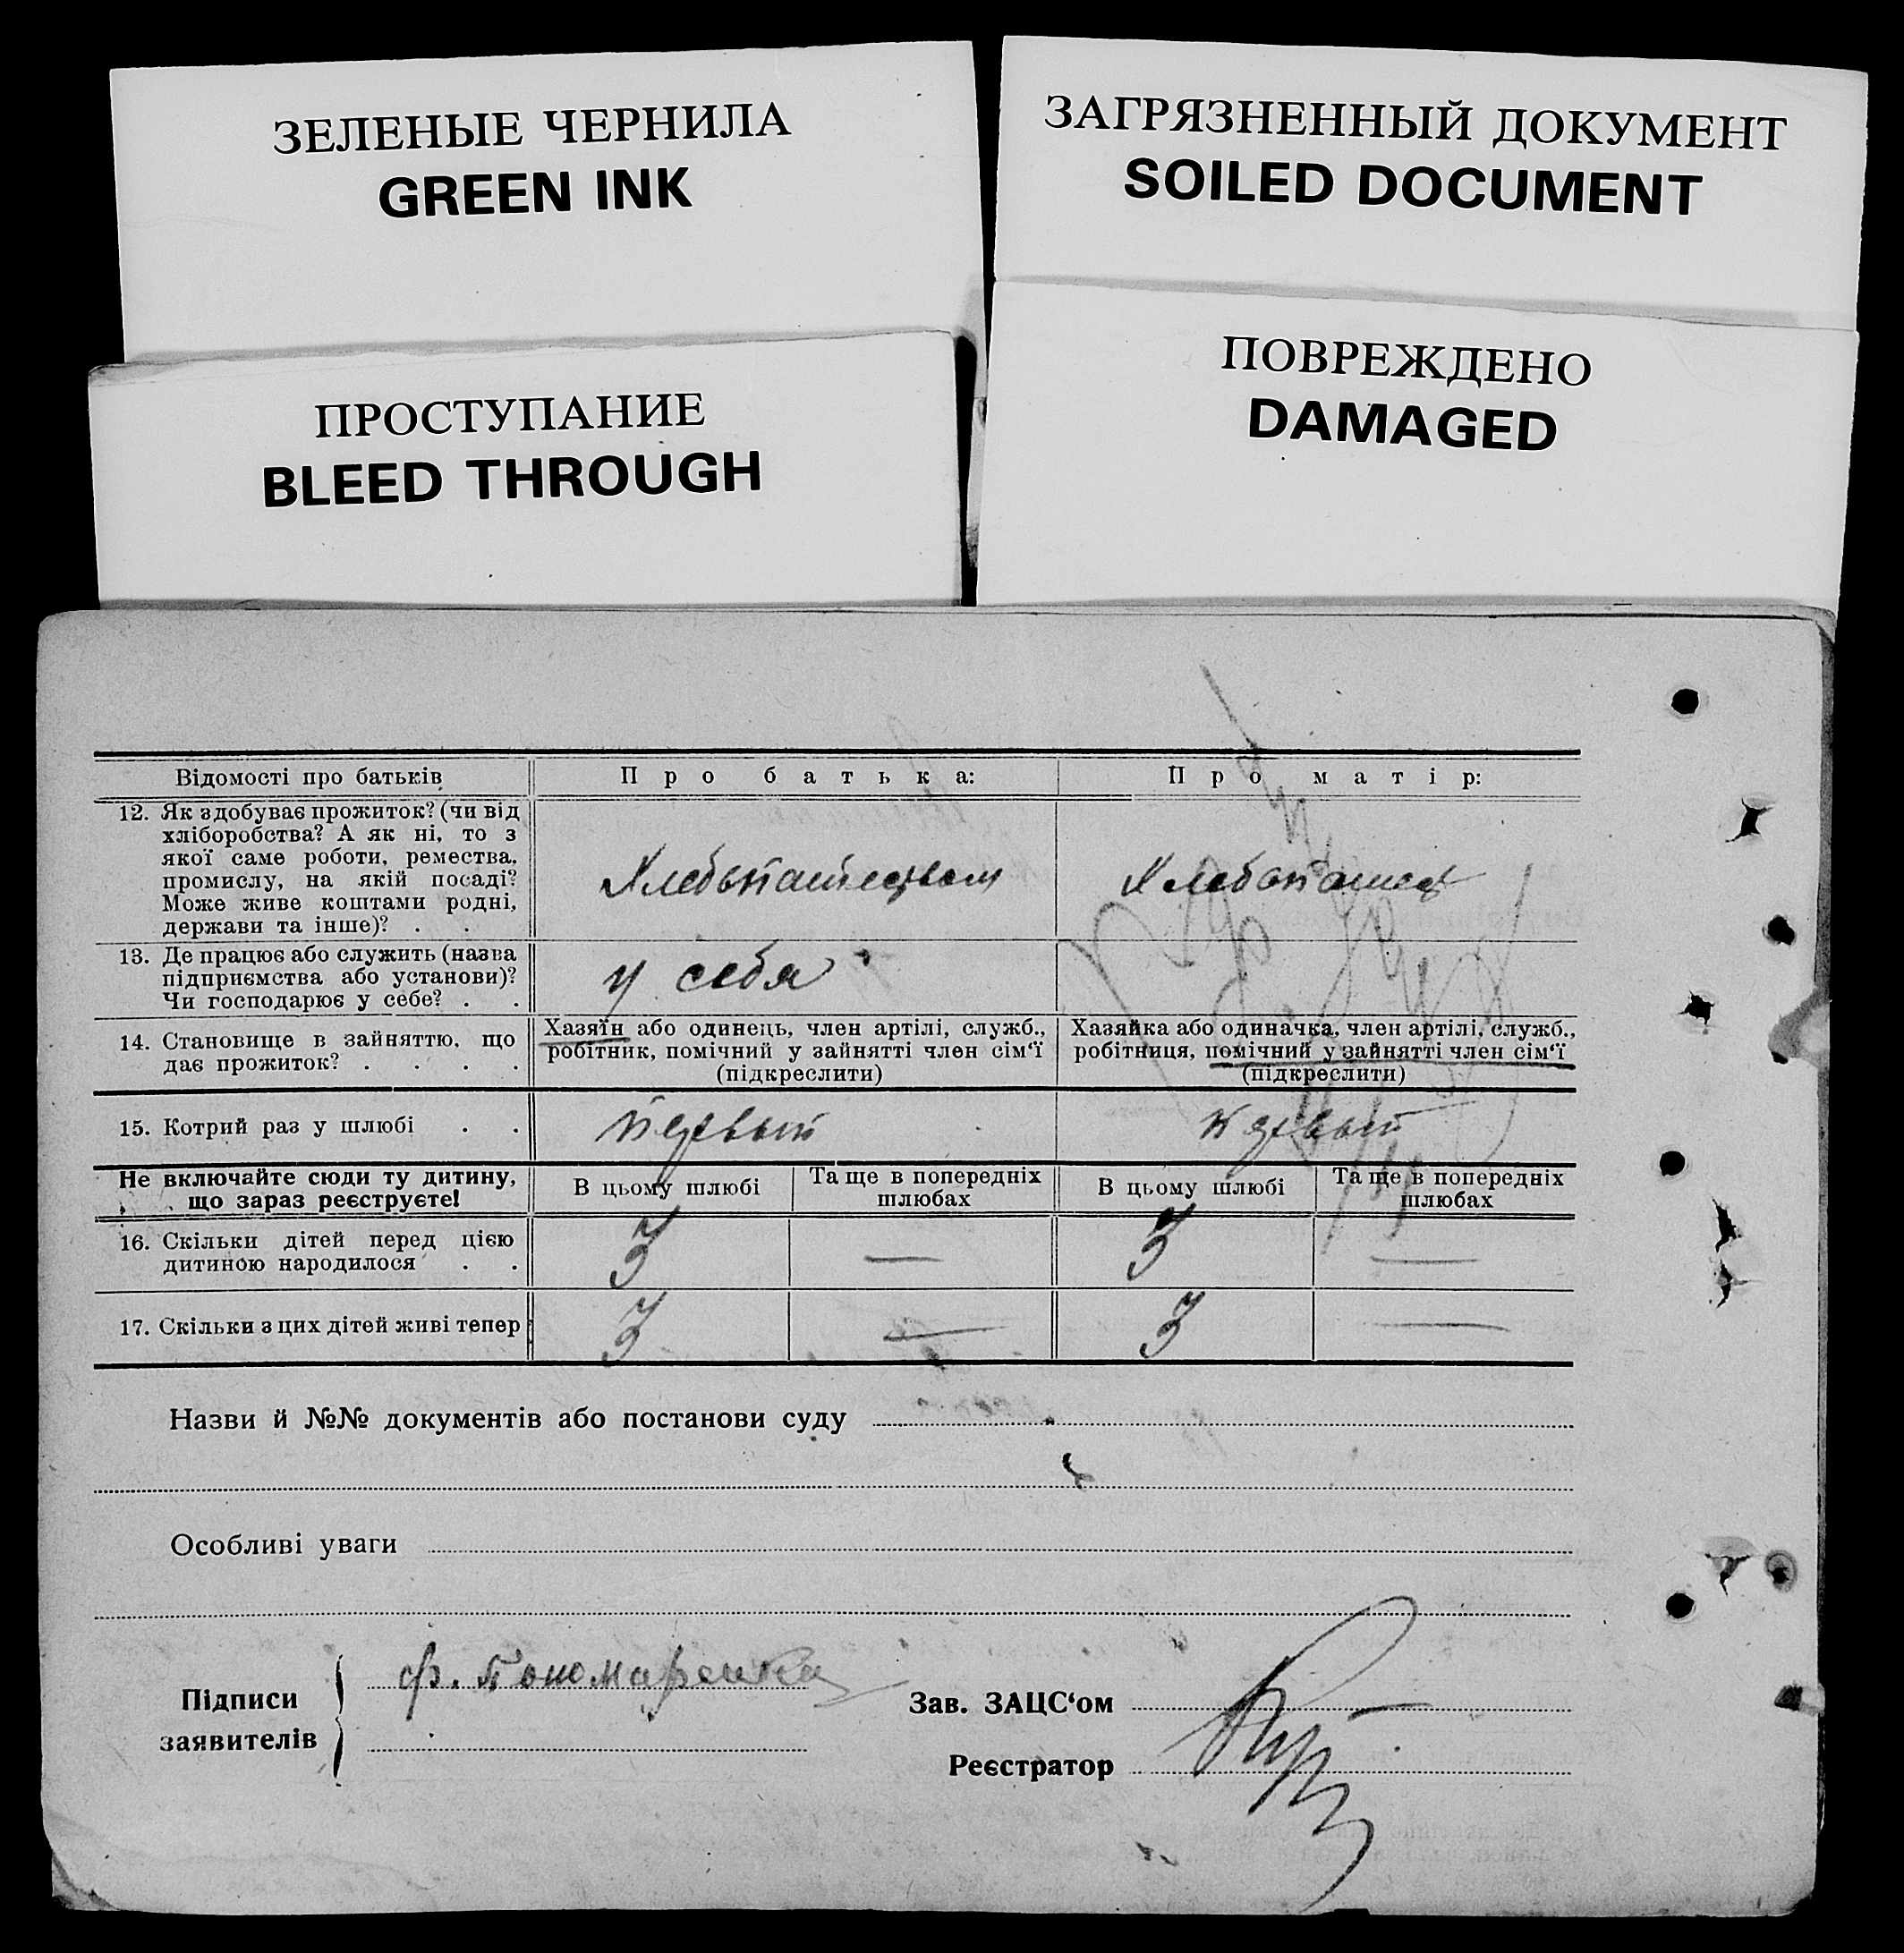 ЗЕЛЕНЫЕ ЧЕРНИЛА
GREEN INK
ЗАГРЯЗНЕННЫЙ ДОКУМЕНТ
SOILED DOCUMENT
ПРОСТУПАНИЕ
BLEED THROUGH
ПОВРЕЖДЕНО
DAMAGED
Відомості про батьків
Про батька:
Про матір:
12. Як здобуває прожиток? (чи від
хліборобства? А як ні, то з
якої саме роботи, ремества,
промислу, на якій посаді?
Може живе коштами родні,
держави та інше)? . .
Хлебопашеством
Хлебопашест
13. Де працює або служить (назва
підприємства або установи)?
Чи господарює у себе? . .
у себя
14. Становище в зайняттю, що
дає прожиток? . . . .
Хазяїн або одинець, член артілі, служб.,
робітник, помічний у зайнятті член сім‘ї
(підкреслити)
Хазяйка або одиначка, член артілі, служб.,
робітниця, помічний у зайнятті член сім‘ї
(підкреслити)
15. Котрий раз у шлюбі . .
первый
первый
Не включайте сюди ту дитину,
що зараз реєструєте!
В цьому шлюбі
Та ще в попередніх
шлюбах
В цьому шлюбі
Та ще в попередніх
шлюбах
16. Скільки дітей перед цією
дитиною народилося . .
3 —
3 —
17. Скільки з цих дітей живі тепер
3 —
3 —
Назви й №№ документів або постанови суду
Особливі уваги
Підписи
заявителів
Ф. Пономаренко
Зав. ЗАЦС‘ом
Реєстратор